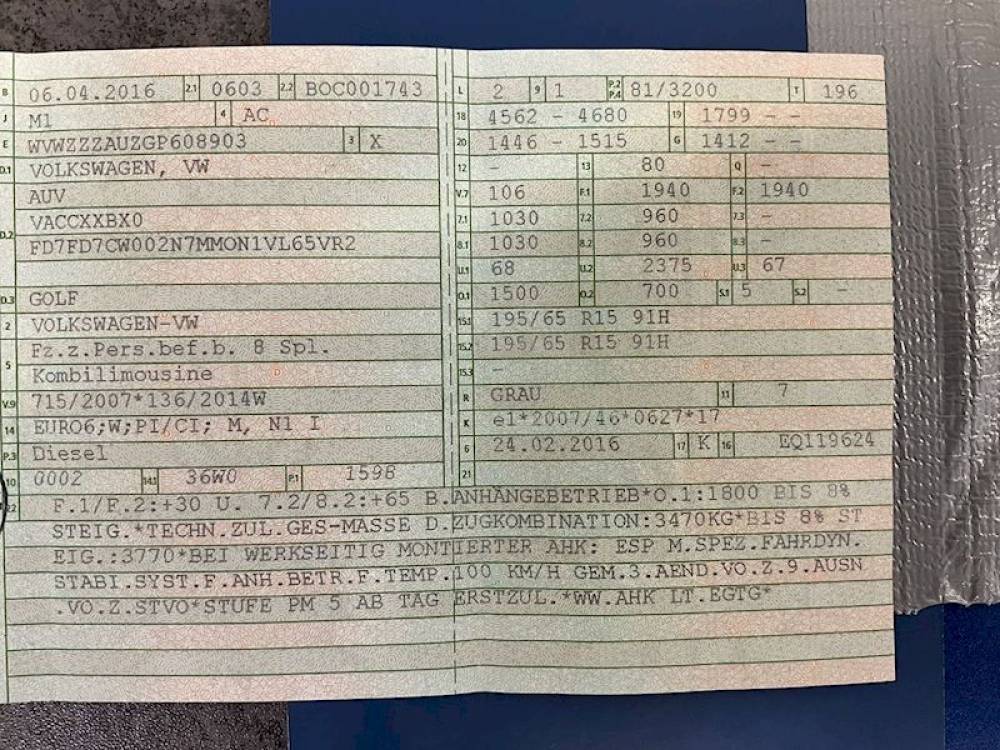 B 06.04.2016 2.1 0603 2.2 BOC001743
J M1 4 AC
E WVWZZZAUZGP608903 3 X
D.1 VOLKSWAGEN, VW
AUV
D.2 VACCXXBX0
FD7FD7CW002N7MMON1VL65VR2
D.3 GOLF
2 VOLKSWAGEN-VW
5 Fz.z.Pers.bef.b. 8 Spl.
Kombilimousine
V.9 715/2007*136/2014W
14 EURO6;W;PI/CI; M, N1 I
P.3 Diesel
10 0002 14.1 36W0 P.1 1598
L 2 9 1 P.2 P.4 81/3200 T 196
18 4562 - 4680 19 1799 - -
20 1446 - 1515 G 1412 - -
12 - 13 80 Q -
V.7 106 F.1 1940 F.2 1940
7.1 1030 7.2 960 7.3 -
8.1 1030 8.2 960 8.3 -
U.1 68 U.2 2375 U.3 67
O.1 1500 O.2 700 S.1 5 S.2 -
15.1 195/65 R15 91H
15.2 195/65 R15 91H
15.3 -
R GRAU 11 7
K e1*2007/46*0627*17
6 24.02.2016 17 K 16 EQ119624
21
22 F.1/F.2:+30 U. 7.2/8.2:+65 B.ANHÄNGEBETRIEB*O.1:1800 BIS 8%
STEIG.*TECHN.ZUL.GES-MASSE D.ZUGKOMBINATION:3470KG*BIS 8% ST
EIG.:3770*BEI WERKSEITIG MONTIERTER AHK: ESP M.SPEZ.FAHRDYN.
STABI.SYST.F.ANH.BETR.F.TEMP.100 KM/H GEM.3.AEND.VO.Z.9.AUSN
.VO.Z.STVO*STUFE PM 5 AB TAG ERSTZUL.*WW.AHK LT.EGTG*